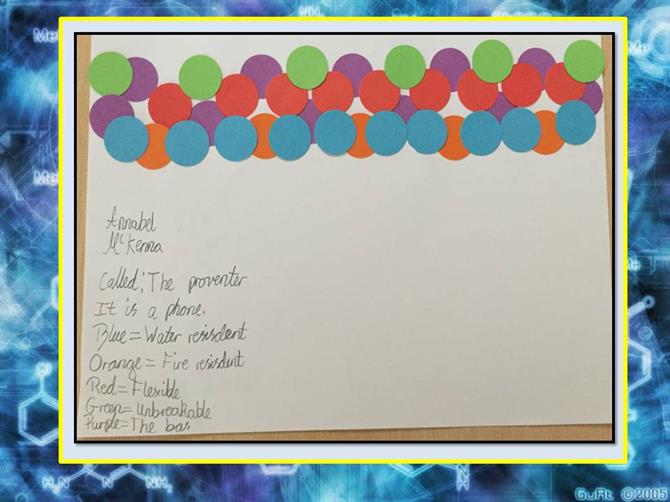 Annabel
McKenna
Called; The proventer
It is a phone.
Blue = Water resisdent
Orange = Fire resisdent
Red = Flexible
Green = Unbreakable
Purple = The bas
GuRt ©2005